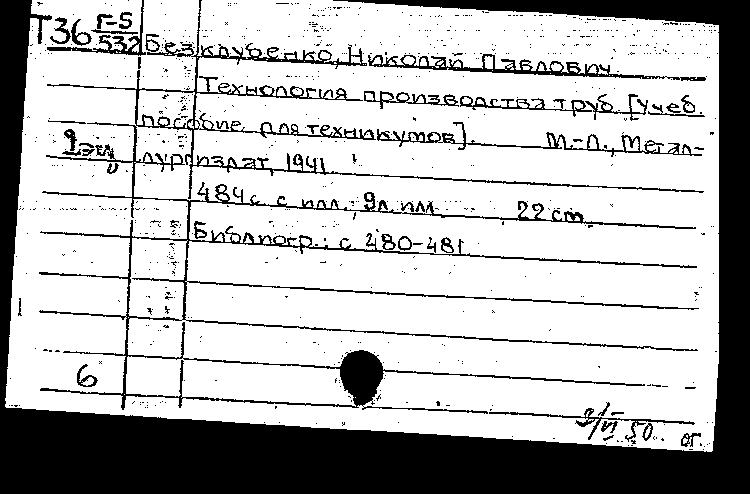 Т36 Г-5
532 Безклубенко, Николай Павлович.
Технология производства труб. [Учеб.
пособие для техникумов]. М.-Л., Метал-
лургиздат, 1941
484с. с илл.; 9л. илл. 22 cm.
Библиогр.: с 480-481
6
50. ог.